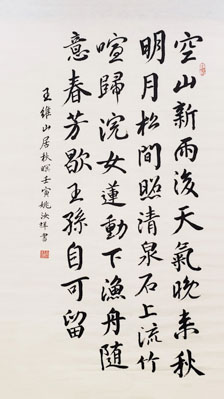 空山新雨後天氣晚來秋
明月松間照清泉石上流竹
喧歸浣女蓮動下漁舟隨
意春芳歇王孫自可留
王維山居秋暝壬寅姚汝祥書